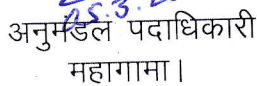 25.3.
अनुमंडल पदाधिकारी
महागामा।